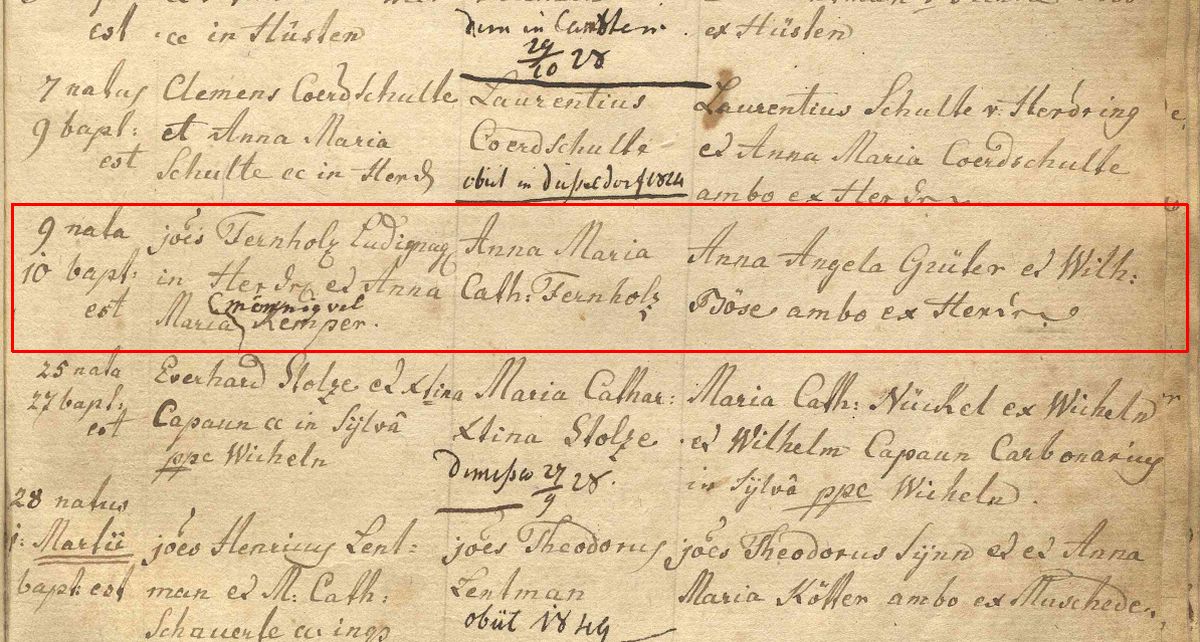 est cc in Hüsten
dim in Cambten
29/10 28
ex Hüsten
7 natus
9 bapt:
est
Clemens Coerdschulte
et Anna Maria
Schulte cc in Herdr
Laurentius
Coerdschulte
obiit in düsseldorf 1824
Laurentius Schulte v: Herdring
et Anna Maria Coerdschulte
ambo ex Herdr
9 nata
10 bapt:
est
joës Fernholz Ludimag
in Herdr et Anna
mönnig vel
Maria Kemper.
Anna Maria
Cath: Fernholz
Anna Angela Grüter et Wilh:
Böse ambo ex Herdr
25 nata
27 bapt:
est
Everhard Stolze et Xtina
Capaun cc in Sÿlvâ
ppe Wicheln
Maria Cathar:
Xtina Stolze
Dimissa 27/9 28.
Maria Cath: Nückel ex Wicheln
et Wilhelm Capaun Carbonarius
in Sÿlvâ ppe Wicheln.
28 natus
j: Martii
bapt: est
joës Henricus Lent=
man et M: Cath:
Schauerte
joës Theodorus
Lentman
obiit 1849
joës Theodorus Sÿnn et et Anna
Maria Kötter ambo ex Muscheden